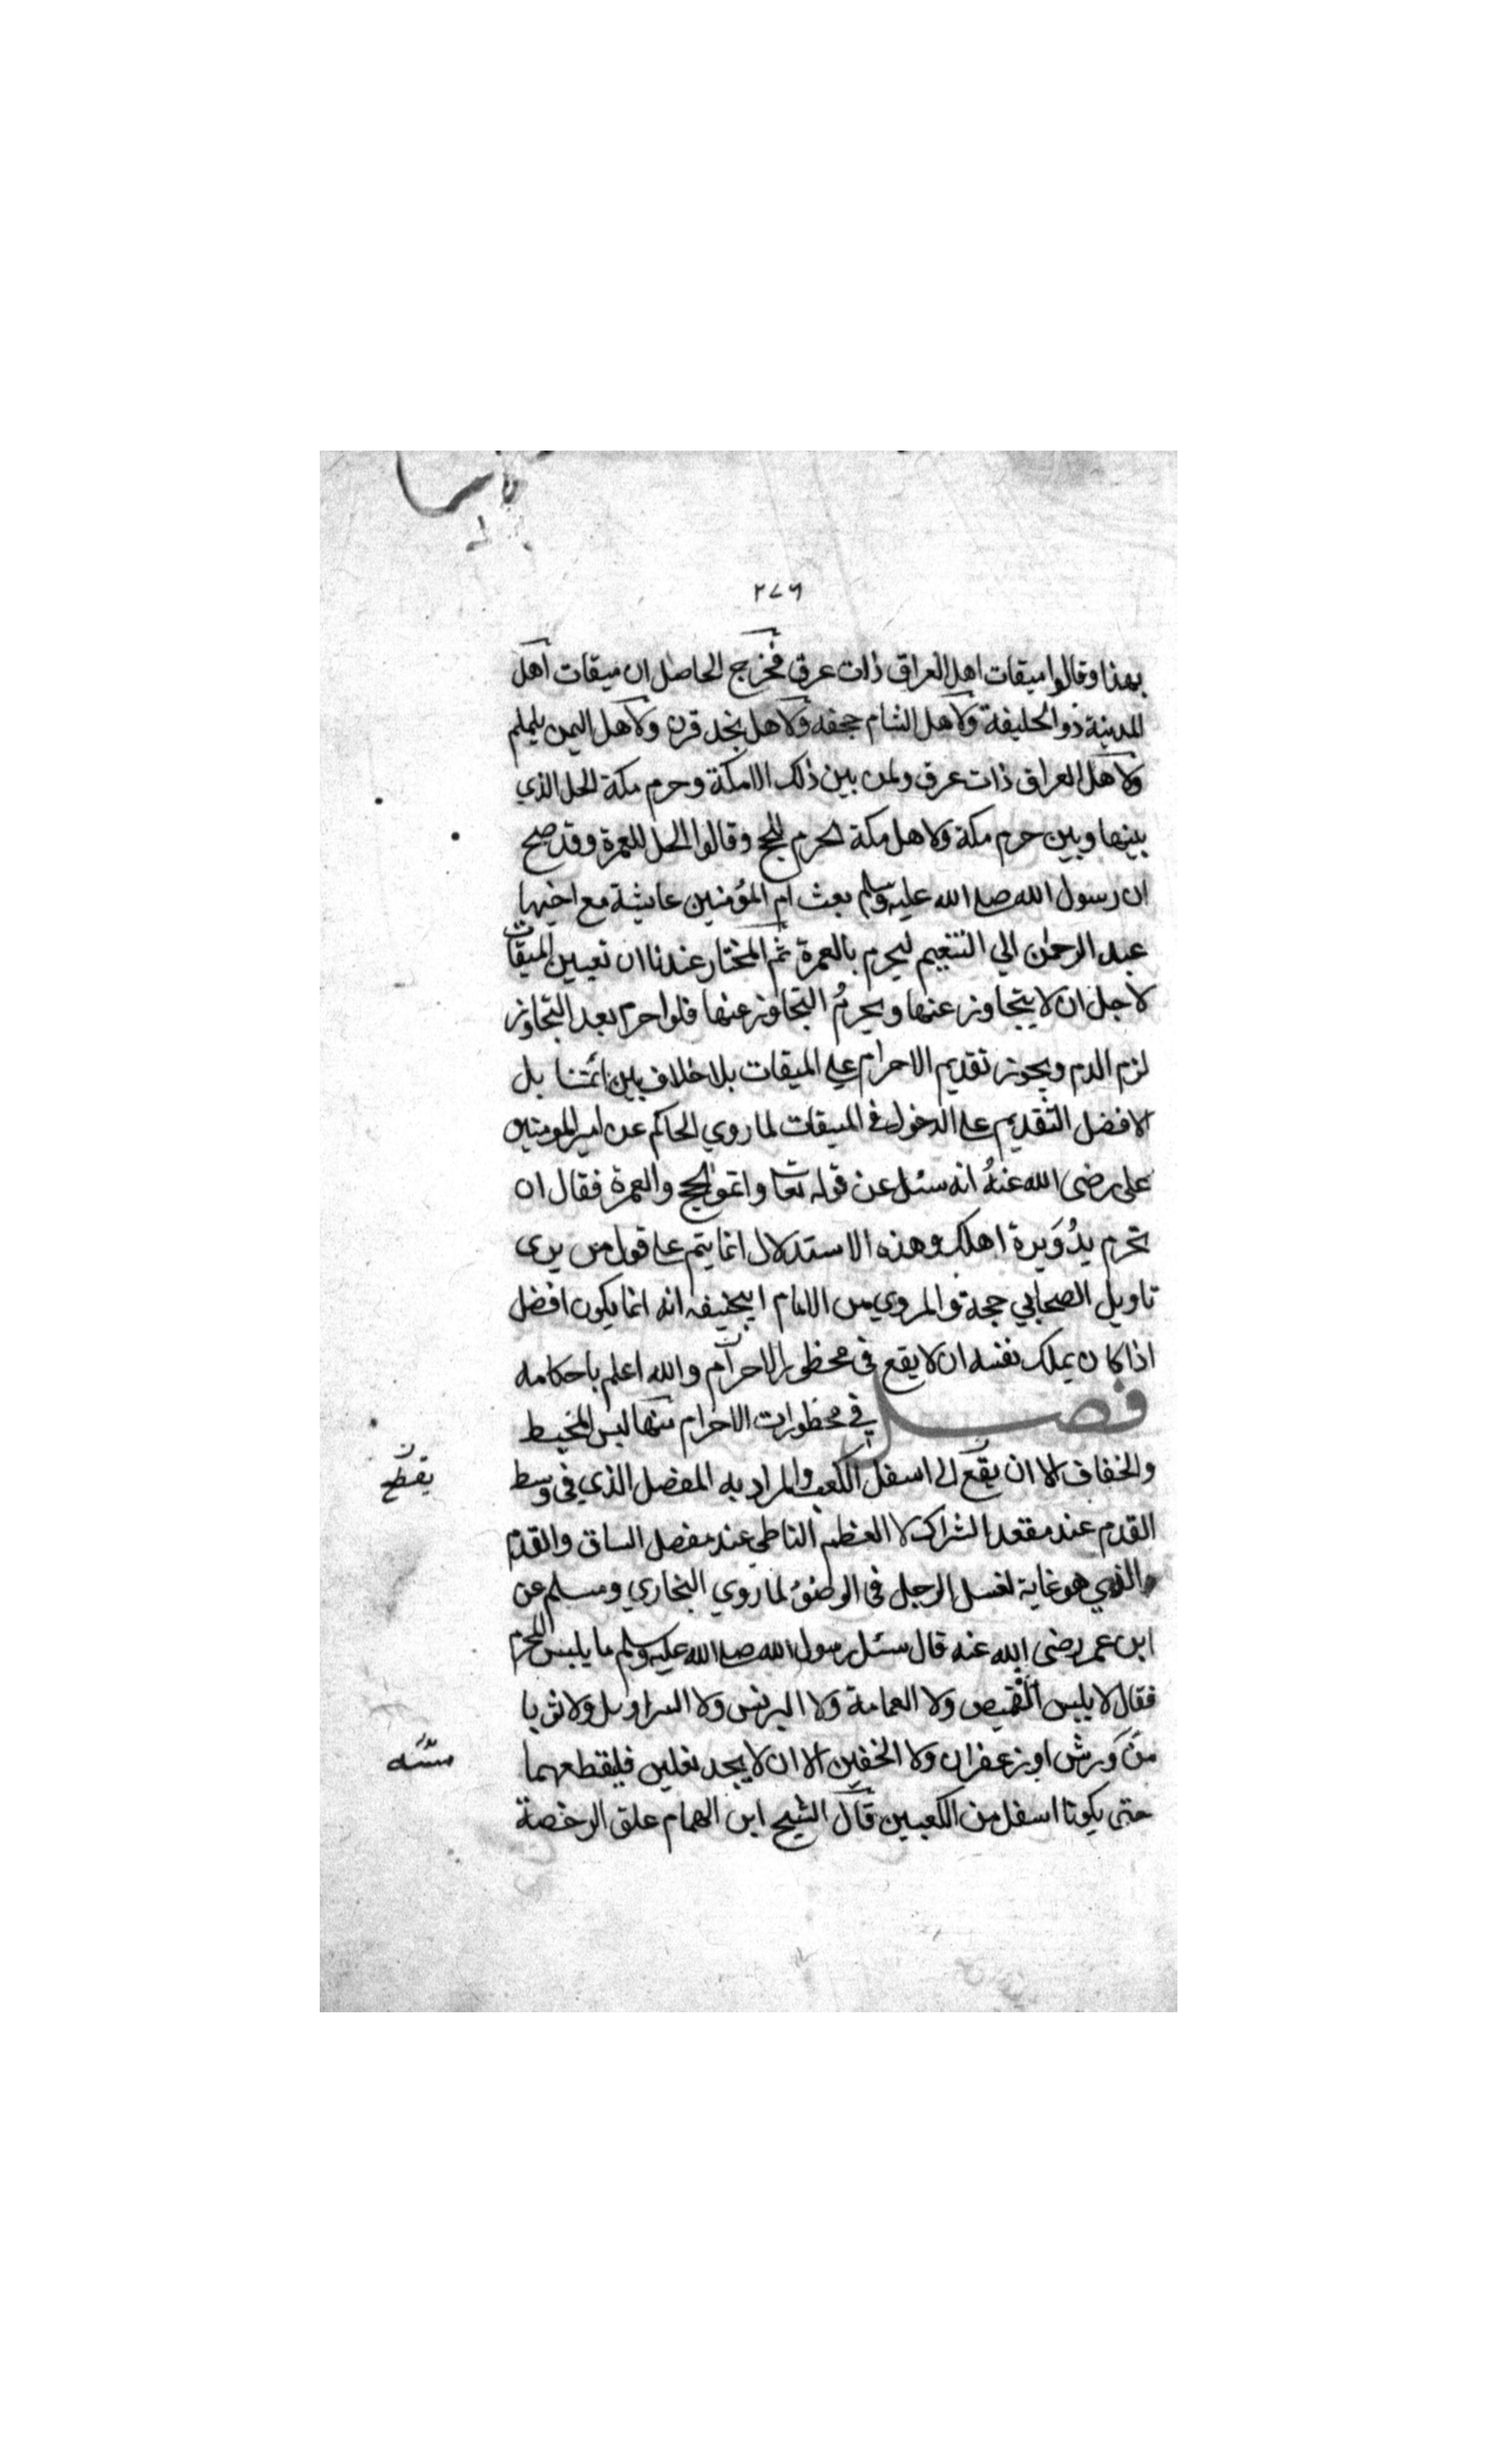 ٢٧٦
بهذا وقالوا ميقات اهل العراق ذات عرق فخرج الحاصل ان ميقات اهل
المدينة ذو الحليفة ولاهل الشام جحفه ولاهل نجد قرن ولاهل اليمن يلملم
ولاهل العراق ذات عرق ولمن بين ذلك الامكنة وحرم مكة الحل الذي
بينها وبين حرم مكة ولاهل مكة الحرم للحج وقالوا الحل للعمرة وقد صح
ان رسول الله صلى الله عليه وسلم بعث ام المؤمنين عايشة مع اخيها
عبد الرحمن الي التنعيم ليحرم بالعمرة ثم المختار عندنا ان تعيين الميقات
لاجل ان لا يتجاوز عنها ويحرمُ التجاوز عنها فلو احرم بعد التجاوز
لزم الدم ويجوز تقديم الاحرام علي الميقات بلا خلاف بين ائمتنا بل
الافضل التقديم على الدخول في الميقات لما روي الحاكم عن امير المومنين
على رضى الله عنهُ انه سئل عن قوله تعا واتموا الحج والعمرة فقال ان
تحرم بدُوَيرة اهلك وهذه الاستدلال انما يتم على قول من يرى
تاويل الصحابي حجة والمروي من الامام ابيحنيفه انه انما يكون افضل
اذا كان يملك نفسه ان لا يقع في محظور الاحرام والله اعلم باحكامه
فصل في محظورات الاحرام منها لبس المخيط
والخفاف الا ان يقع الى اسفل الكعب والمراد به المفصل الذي في وسط
يقطع
القدم عند مقعد الشراك لا العظم الناطى عند مفصل الساق والقدم
والذي هو غاية لغسل الرجل في الوضؤ لما روي البخاري ومسلم عن
ابن عمر رضى الله عنه قال سئل رسول الله صلى الله عليه وسلم ما يلبس المحرم
فقال لا يلبس القميص ولا العمامة ولا البرنس ولا السراويل ولا ثوبا
من ورش او زعفران ولا الخفين الا ان لا يجد نعلين فليقطعهما
مسّه
حتى يكونا اسفل من الكعبين قال الشيخ ابن الهمام علق الرخصة